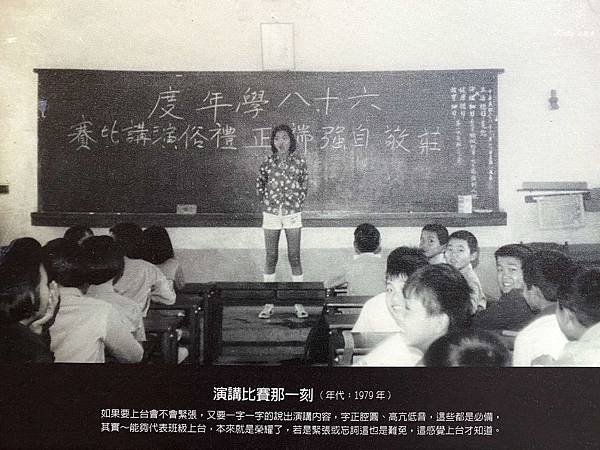 六十八學年度
莊敬自強端正禮俗演講比賽
演講比賽那一刻（年代：1979 年）
如果要上台會不會緊張，又要一字一字的說出演講內容，字正腔圓、高亢低音，這些都是必備，
其實～能夠代表班級上台，本來就是榮耀了，若是緊張或忘詞這也是難免，這感覺上台才知道。